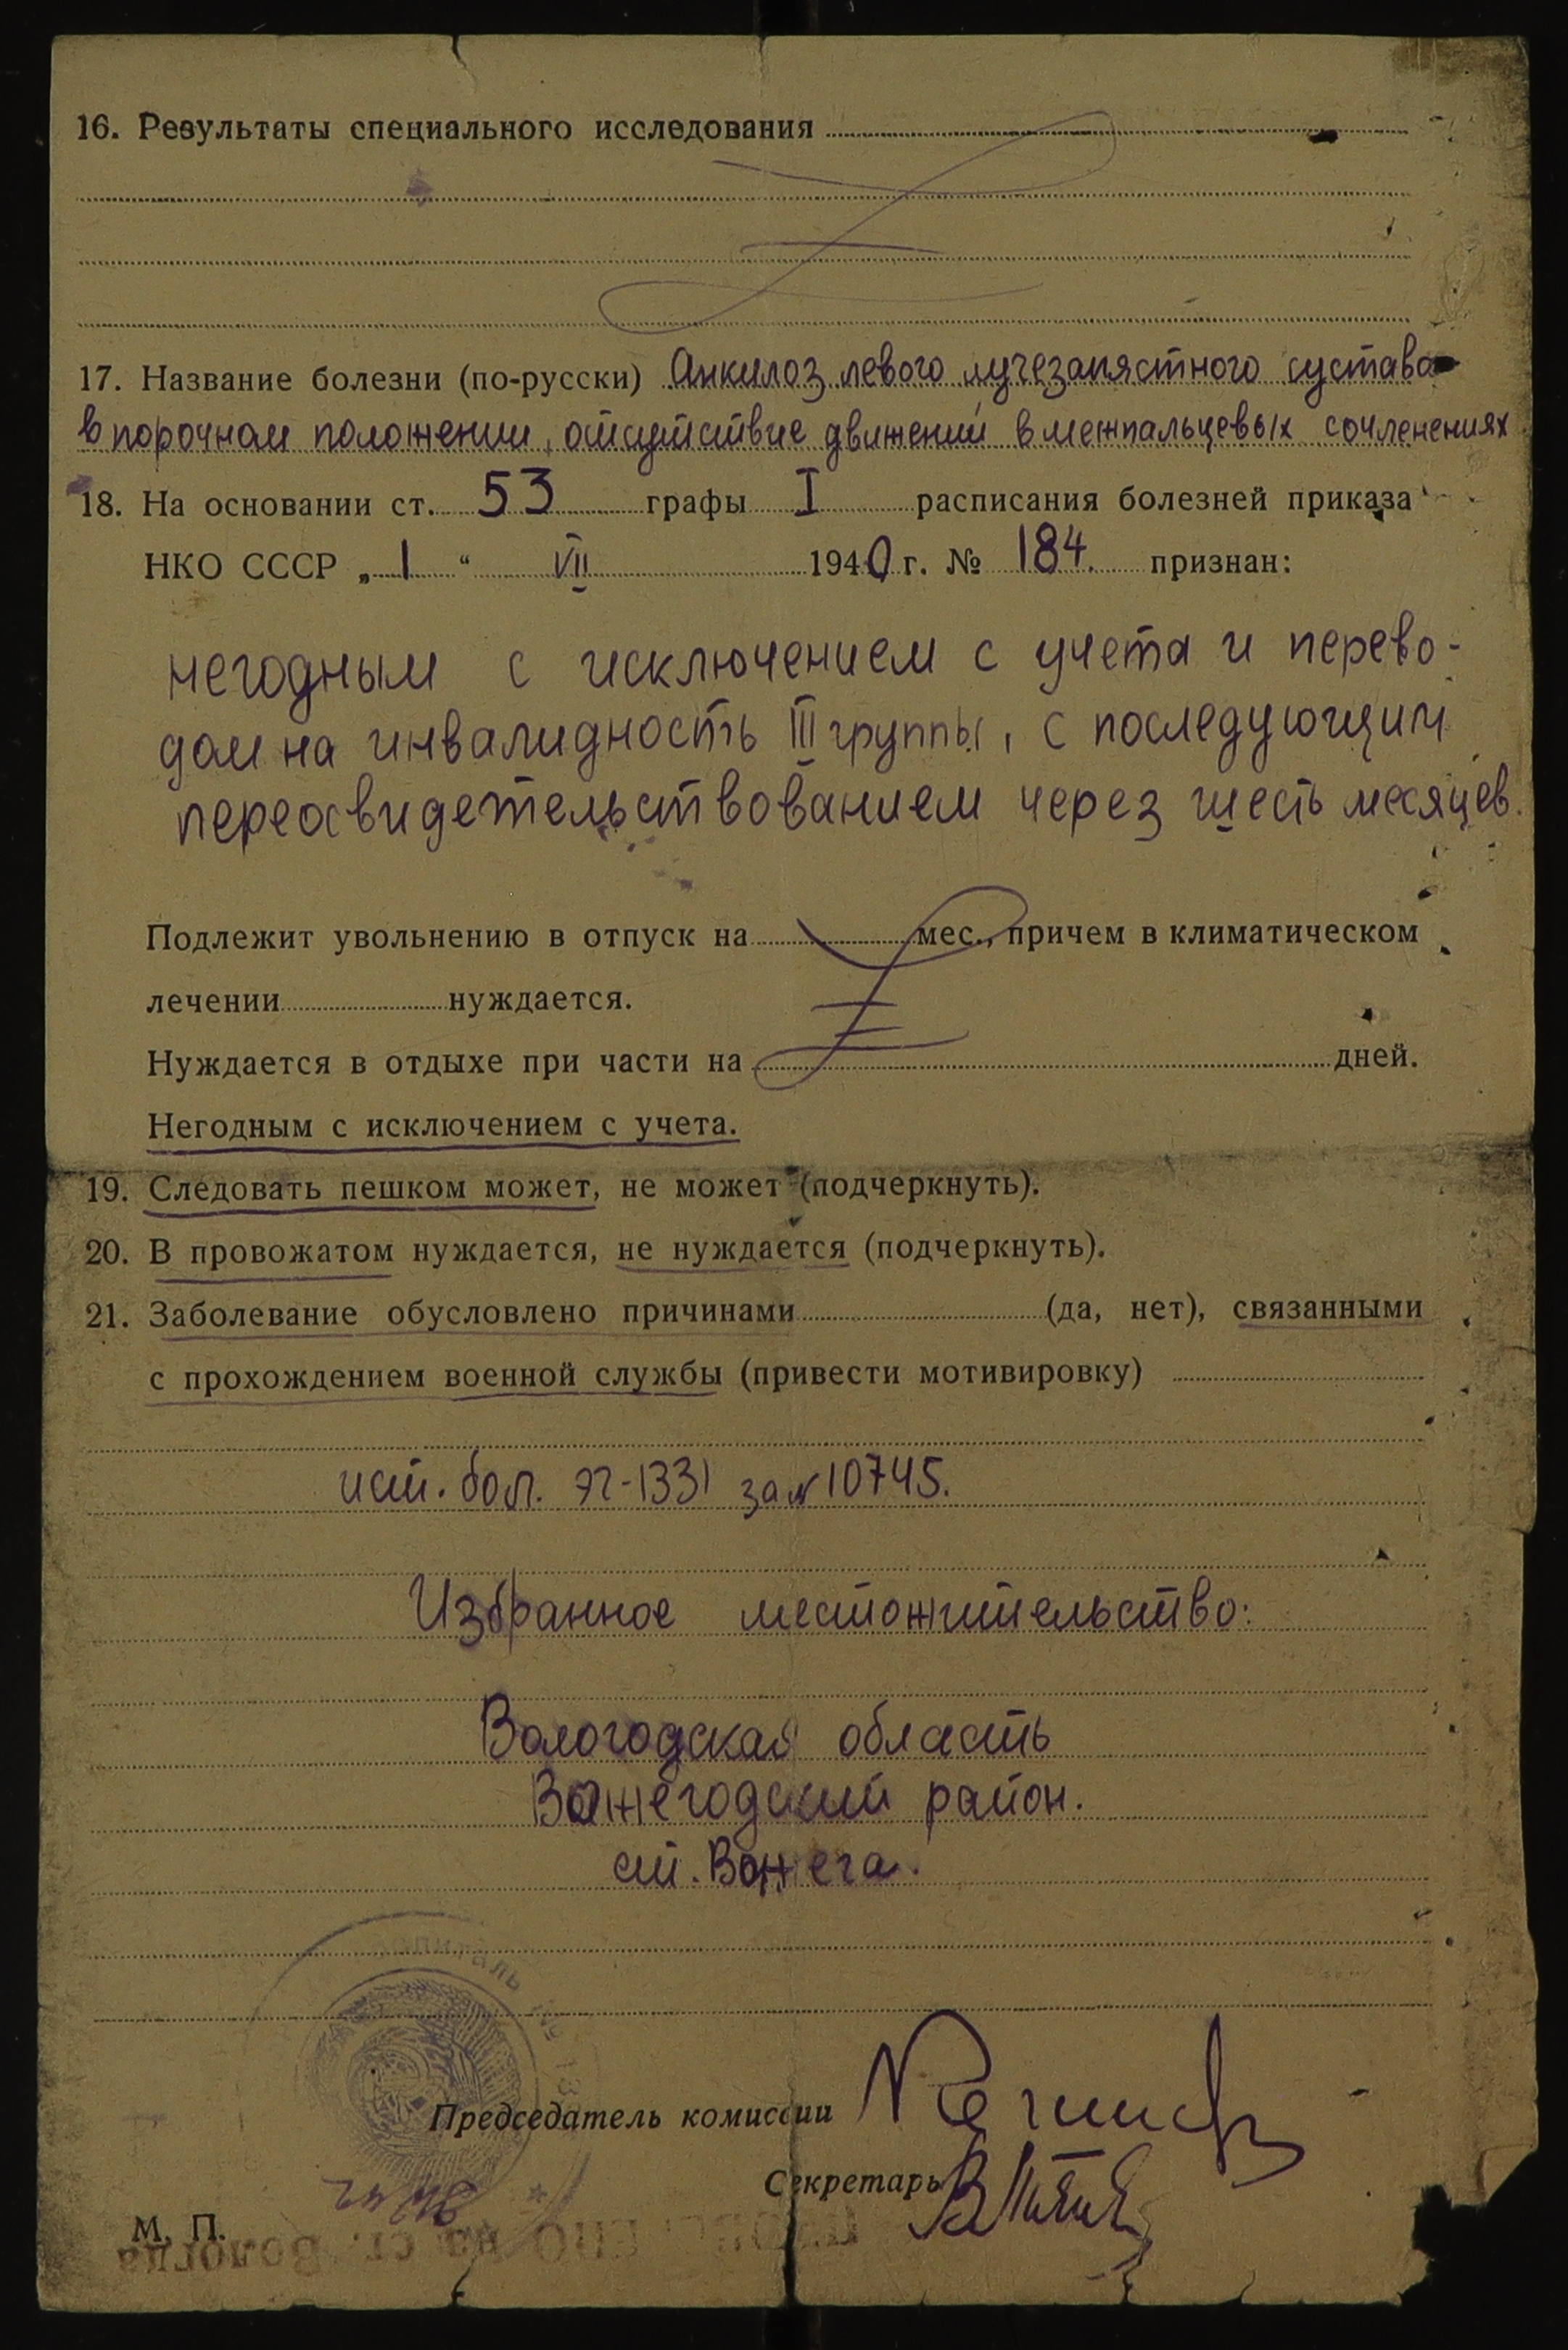 16. Результаты специального исследования
17. Название болезни (по-русски) Анкилоз левого лучезапястного сустава
в порочном положении, отсутствие движений в межпальцевых сочленениях
18. На основании ст. 53 графы I расписания болезней приказа
НКО СССР „1“ VII 1940 г. № 184. признан:
негодным с исключением с учета и перево-
дом на инвалидность III группы, с последующим
переосвидетельствованием через шесть месяцев.
Подлежит увольнению в отпуск на мес., причем в климатическом
лечении нуждается.
Нуждается в отдыхе при части на дней.
Негодным с исключением с учета.
19. Следовать пешком может, не может (подчеркнуть).
20. В провожатом нуждается, не нуждается (подчеркнуть).
21. Заболевание обусловлено причинами (да, нет), связанными
с прохождением военной службы (привести мотивировку)
ист. бол. ЭГ-1331 за № 10745.
Избранное местожительство:
Вологодская область
Вожегодский район.
ст. Вожега.
Председатель комиссии
Секретарь
М. П.
на ст. Вологда